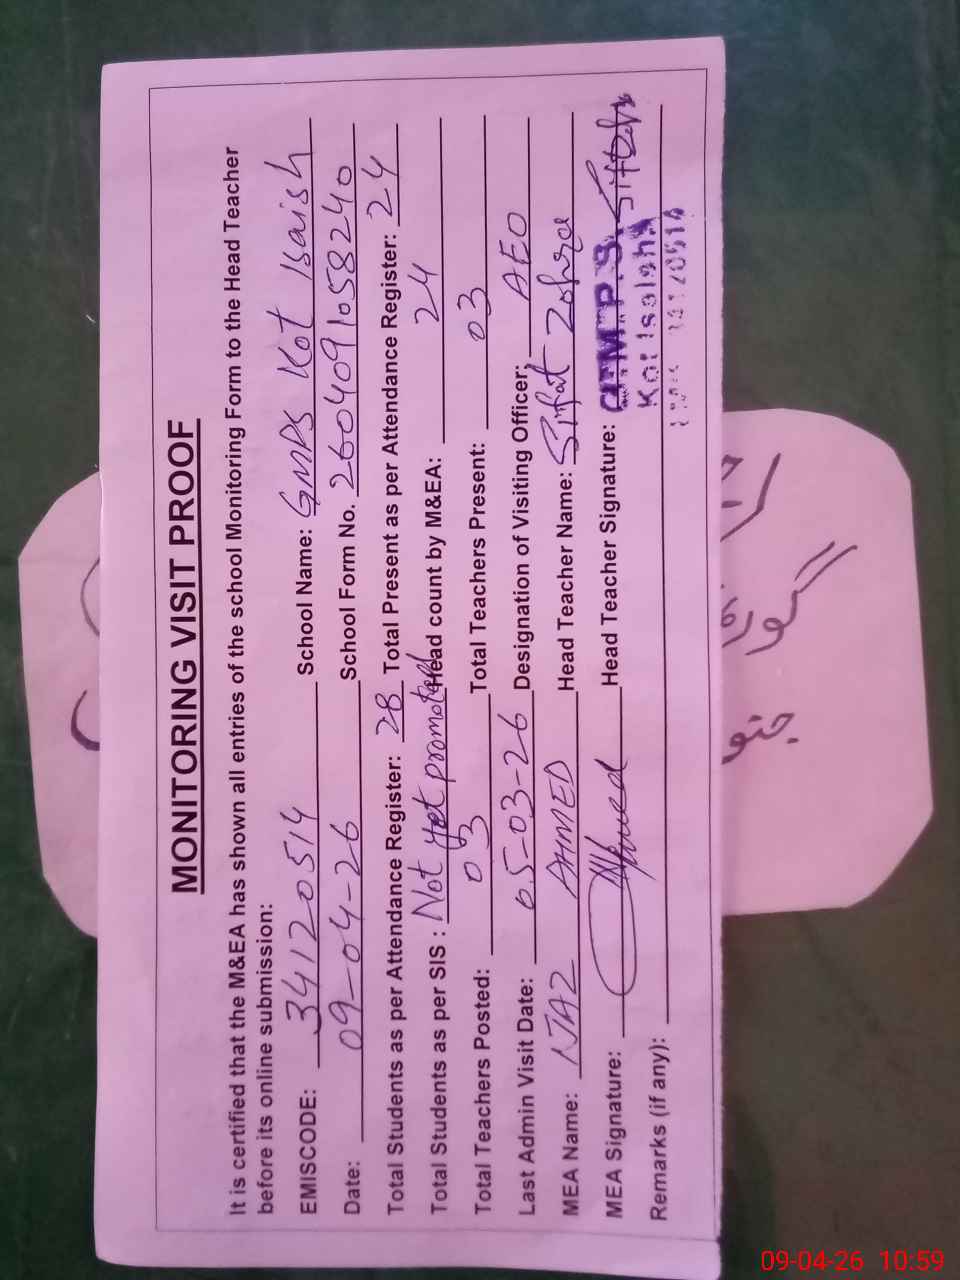 MONITORING VISIT PROOF
It is certified that the M&EA has shown all entries of the school Monitoring Form to the Head Teacher
before its online submission:
EMISCODE: 34120514 School Name: GMPS Kot Isaish
Date: 09-04-26 School Form No. 2604091058240
Total Students as per Attendance Register: 28 Total Present as per Attendance Register: 24
Total Students as per SIS : Not yet promoted Head count by M&EA: 24
Total Teachers Posted: 03 Total Teachers Present: 03
Last Admin Visit Date: 05-03-26 Designation of Visiting Officer: AEO
MEA Name: NJAZ AHMED Head Teacher Name: Sifat Zohra
MEA Signature: Ahmed Head Teacher Signature: G.M.P.S.
Kot Isaiahs
Remarks (if any):
09-04-26 10:59